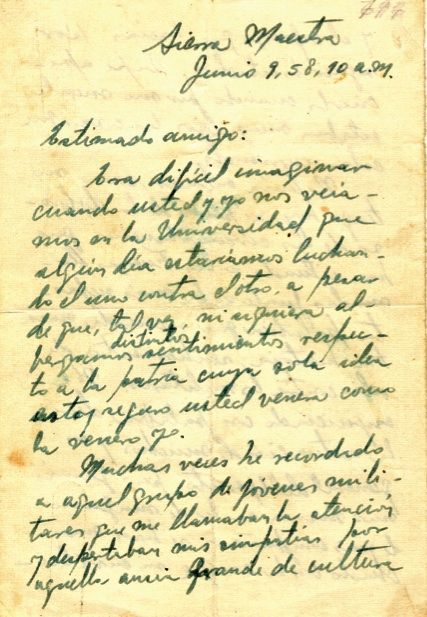 777
Sierra Maestra
Junio 9, 58, 10 a.m.
Estimado amigo:
Era difícil imaginar
cuando usted y yo nos veía-
mos en la Universidad que
algún día estaríamos luchan-
do el uno contra el otro, a pesar
de que, tal vez, ni siquiera al-
distintos
bergamos sentimientos respec-
to a la patria cuya sola idea
estoy seguro usted venera como
la venero yo.
Muchas veces he recordado
a aquel grupo de jóvenes mili-
tares que me llamaban la atención
y despertaban mis simpatías por
aquella ansia grande de cultura